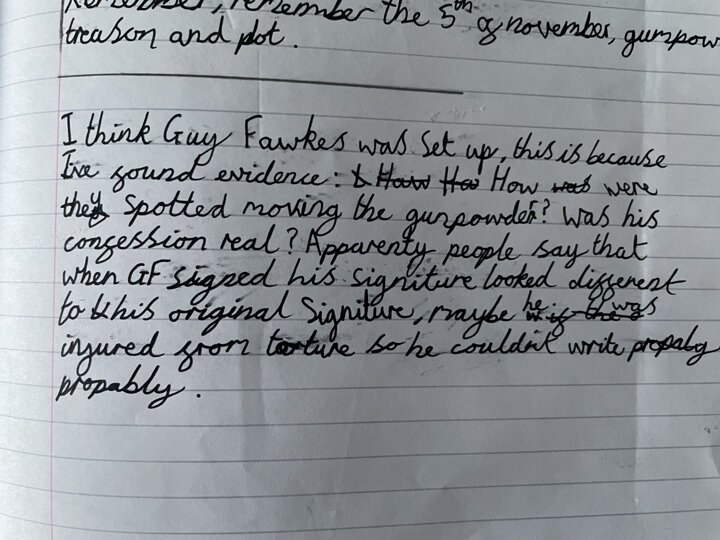 Remember, remember the 5th of november, gunpow
treason and plot.
I think Guy Fawkes was set up, this is because
I've found evidence: How were
they spotted moving the gunpowder? Was his
confession real? Apparenty people say that
when GF signed his signiture looked different
to his original signiture, maybe he was
injured from torture so he couldn't write
propably.